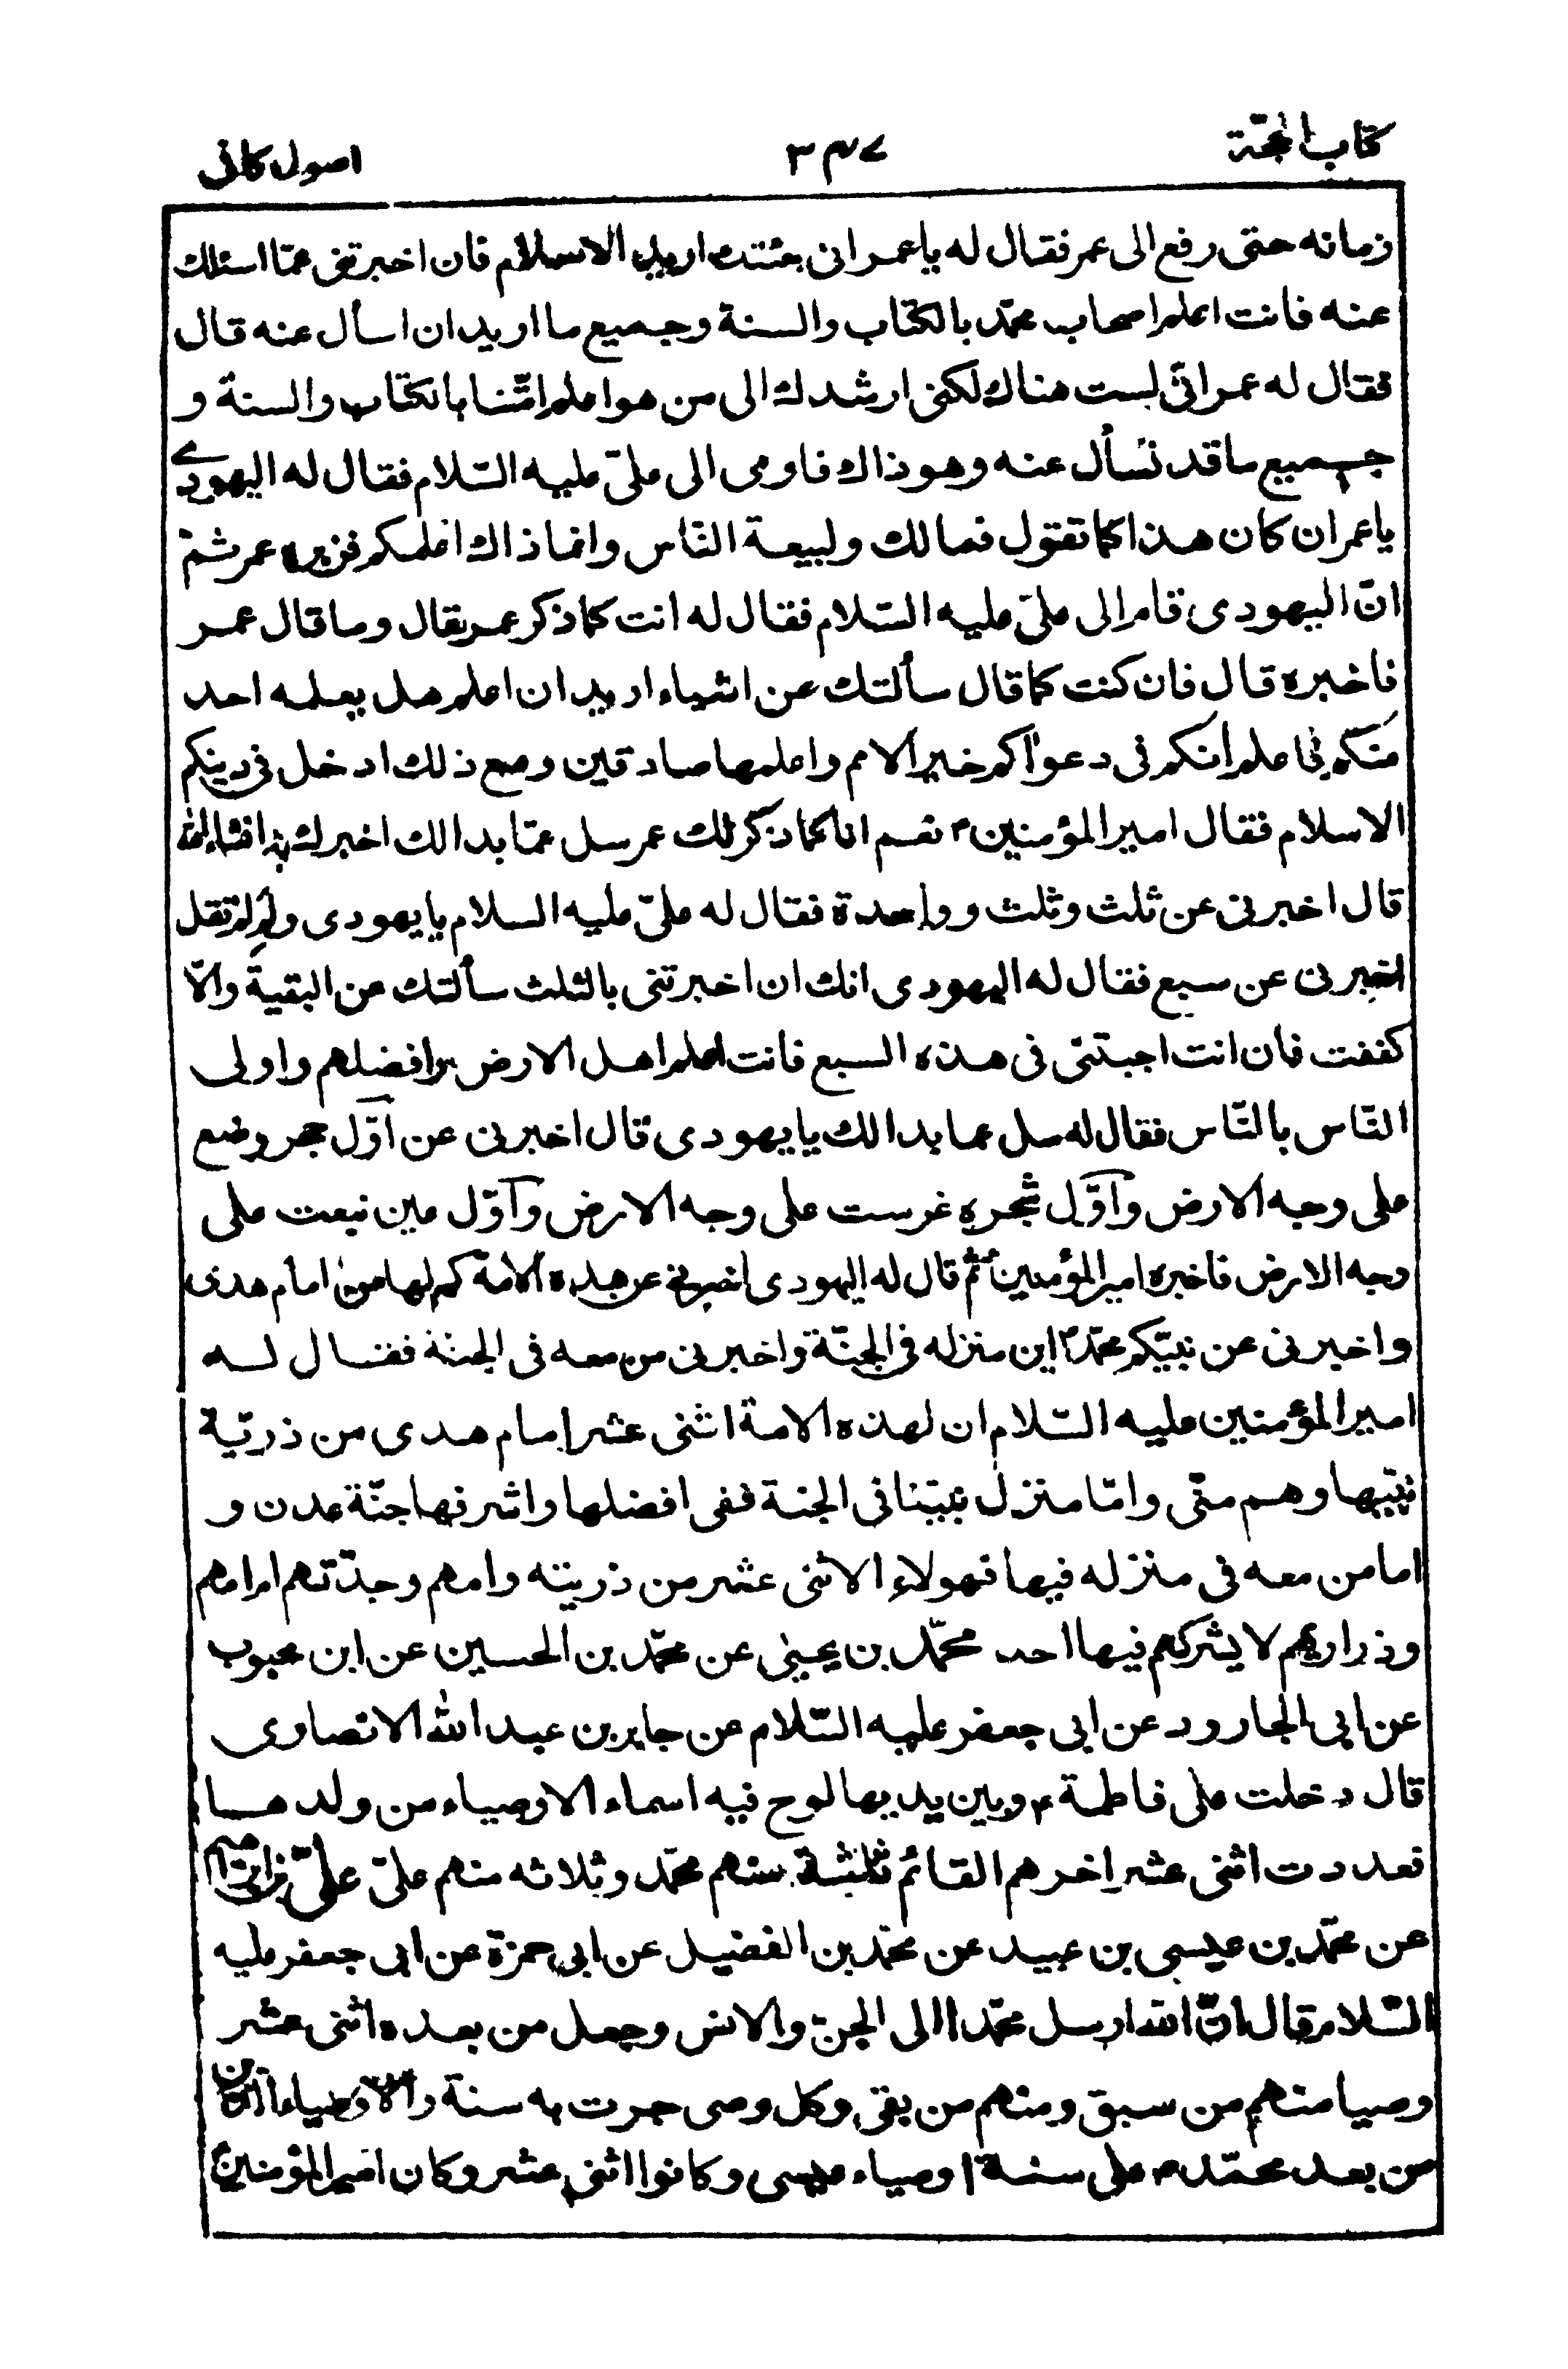 كتاب الحجّة ۳۴۷ اصول كافى
زمانه حتى رفع الى عمر فقال له يا عمر انى جئتك اريد الاسلام فان اخبرتنى عمّا اسئلك
عنه فانت اعلم اصحاب محمّد بالكتاب والسنة وجميع ما اريد ان اسأل عنه قال
فقال له عمر انّى لست هناك لكنى ارشدك الى من هو اعلم امّتنا بالكتاب والسنة و
جميع ما قد تسأل عنه وهو ذاك فاومى الى علىّ عليه السّلام فقال له اليهودى
يا عمر ان كان هذا كما تقول فمالك ولبيعة النّاس وانما ذاك اعلمكم فزبره عمر ثمّ
انّ اليهودى قام الى علىّ عليه السّلام فقال له انت كما ذكر عمر فقال وما قال عمر
فاخبره قال فان كنت كما قال سألتك عن اشياء اريد ان اعلم هل يعلمه احد
منكم فاعلم انكم فى دعواكم خير الامم واعلمها صادقين ومع ذلك ادخل فى دينكم
الاسلام فقال امير المؤمنين ع نعم انا كما ذكر لك عمر سل عمّا بدا لك اخبرك به انشاء الله
قال اخبرنى عن ثلث وثلث وواحدة فقال له علىّ عليه السلام يا يهودى ولم لم تقل
اخبرنى عن سبع فقال له اليهودى انك ان اخبرتنى بالثلث سألتك عن البقية والّا
كففت فان انت اجبتنى فى هذه السبع فانت اعلم اهل الارض وافضلهم واولى
النّاس بالنّاس فقال له سل عما بدا لك يا يهودى قال اخبرنى عن اوّل حجر وضع
على وجه الارض واوّل شجره غرست على وجه الارض واوّل عين نبعت على
وجه الارض فاخبره امير المؤمنين ع ثم قال له اليهودى اخبرنى عن هذه الامة كم لها من امام هدى
واخبرنى عن نبيّكم محمّد اين منزله فى الجنّة واخبرنى من معه فى الجنة فقال له
امير المؤمنين عليه السّلام ان لهذه الامة اثنى عشر امام هدى من ذريّة
نبيّها وهم منّى وامّا منزل نبيّنا فى الجنة ففى افضلها واشرفها جنّة عدن و
اما من معه فى منزله فيها فهولاء الاثنى عشر من ذريته وامهم وجدّتهم ام امهم
وذراريهم لا يشركهم فيها احد محمّد بن يحيىٰ عن محمّد بن الحسين عن ابن محبوب
عن ابى الجارود عن ابى جعفر عليه السّلام عن جابر بن عبد الله الانصارى
قال دخلت على فاطمة ع وبين يديها لوح فيه اسماء الاوصياء من ولدها
فعددت اثنى عشر اخرهم القائم ثلثة منهم محمّد وثلاثه منهم علىّ علىّ بن ابراهيم
عن محمّد بن عيسى بن عبيد عن محمّد بن الفضيل عن ابى حمزة عن ابى جعفر عليه
السّلام قال انّ الله ارسل محمّدا الى الجن والانس وجعل من بعده اثنى عشر
وصيا منهم من سبق ومنهم من بقى وكل وصى جرت به سنة والاوصياء الذين
من بعد محمّد ع على سنة اوصياء عيسى وكانوا اثنى عشر وكان امير المؤمنين ع